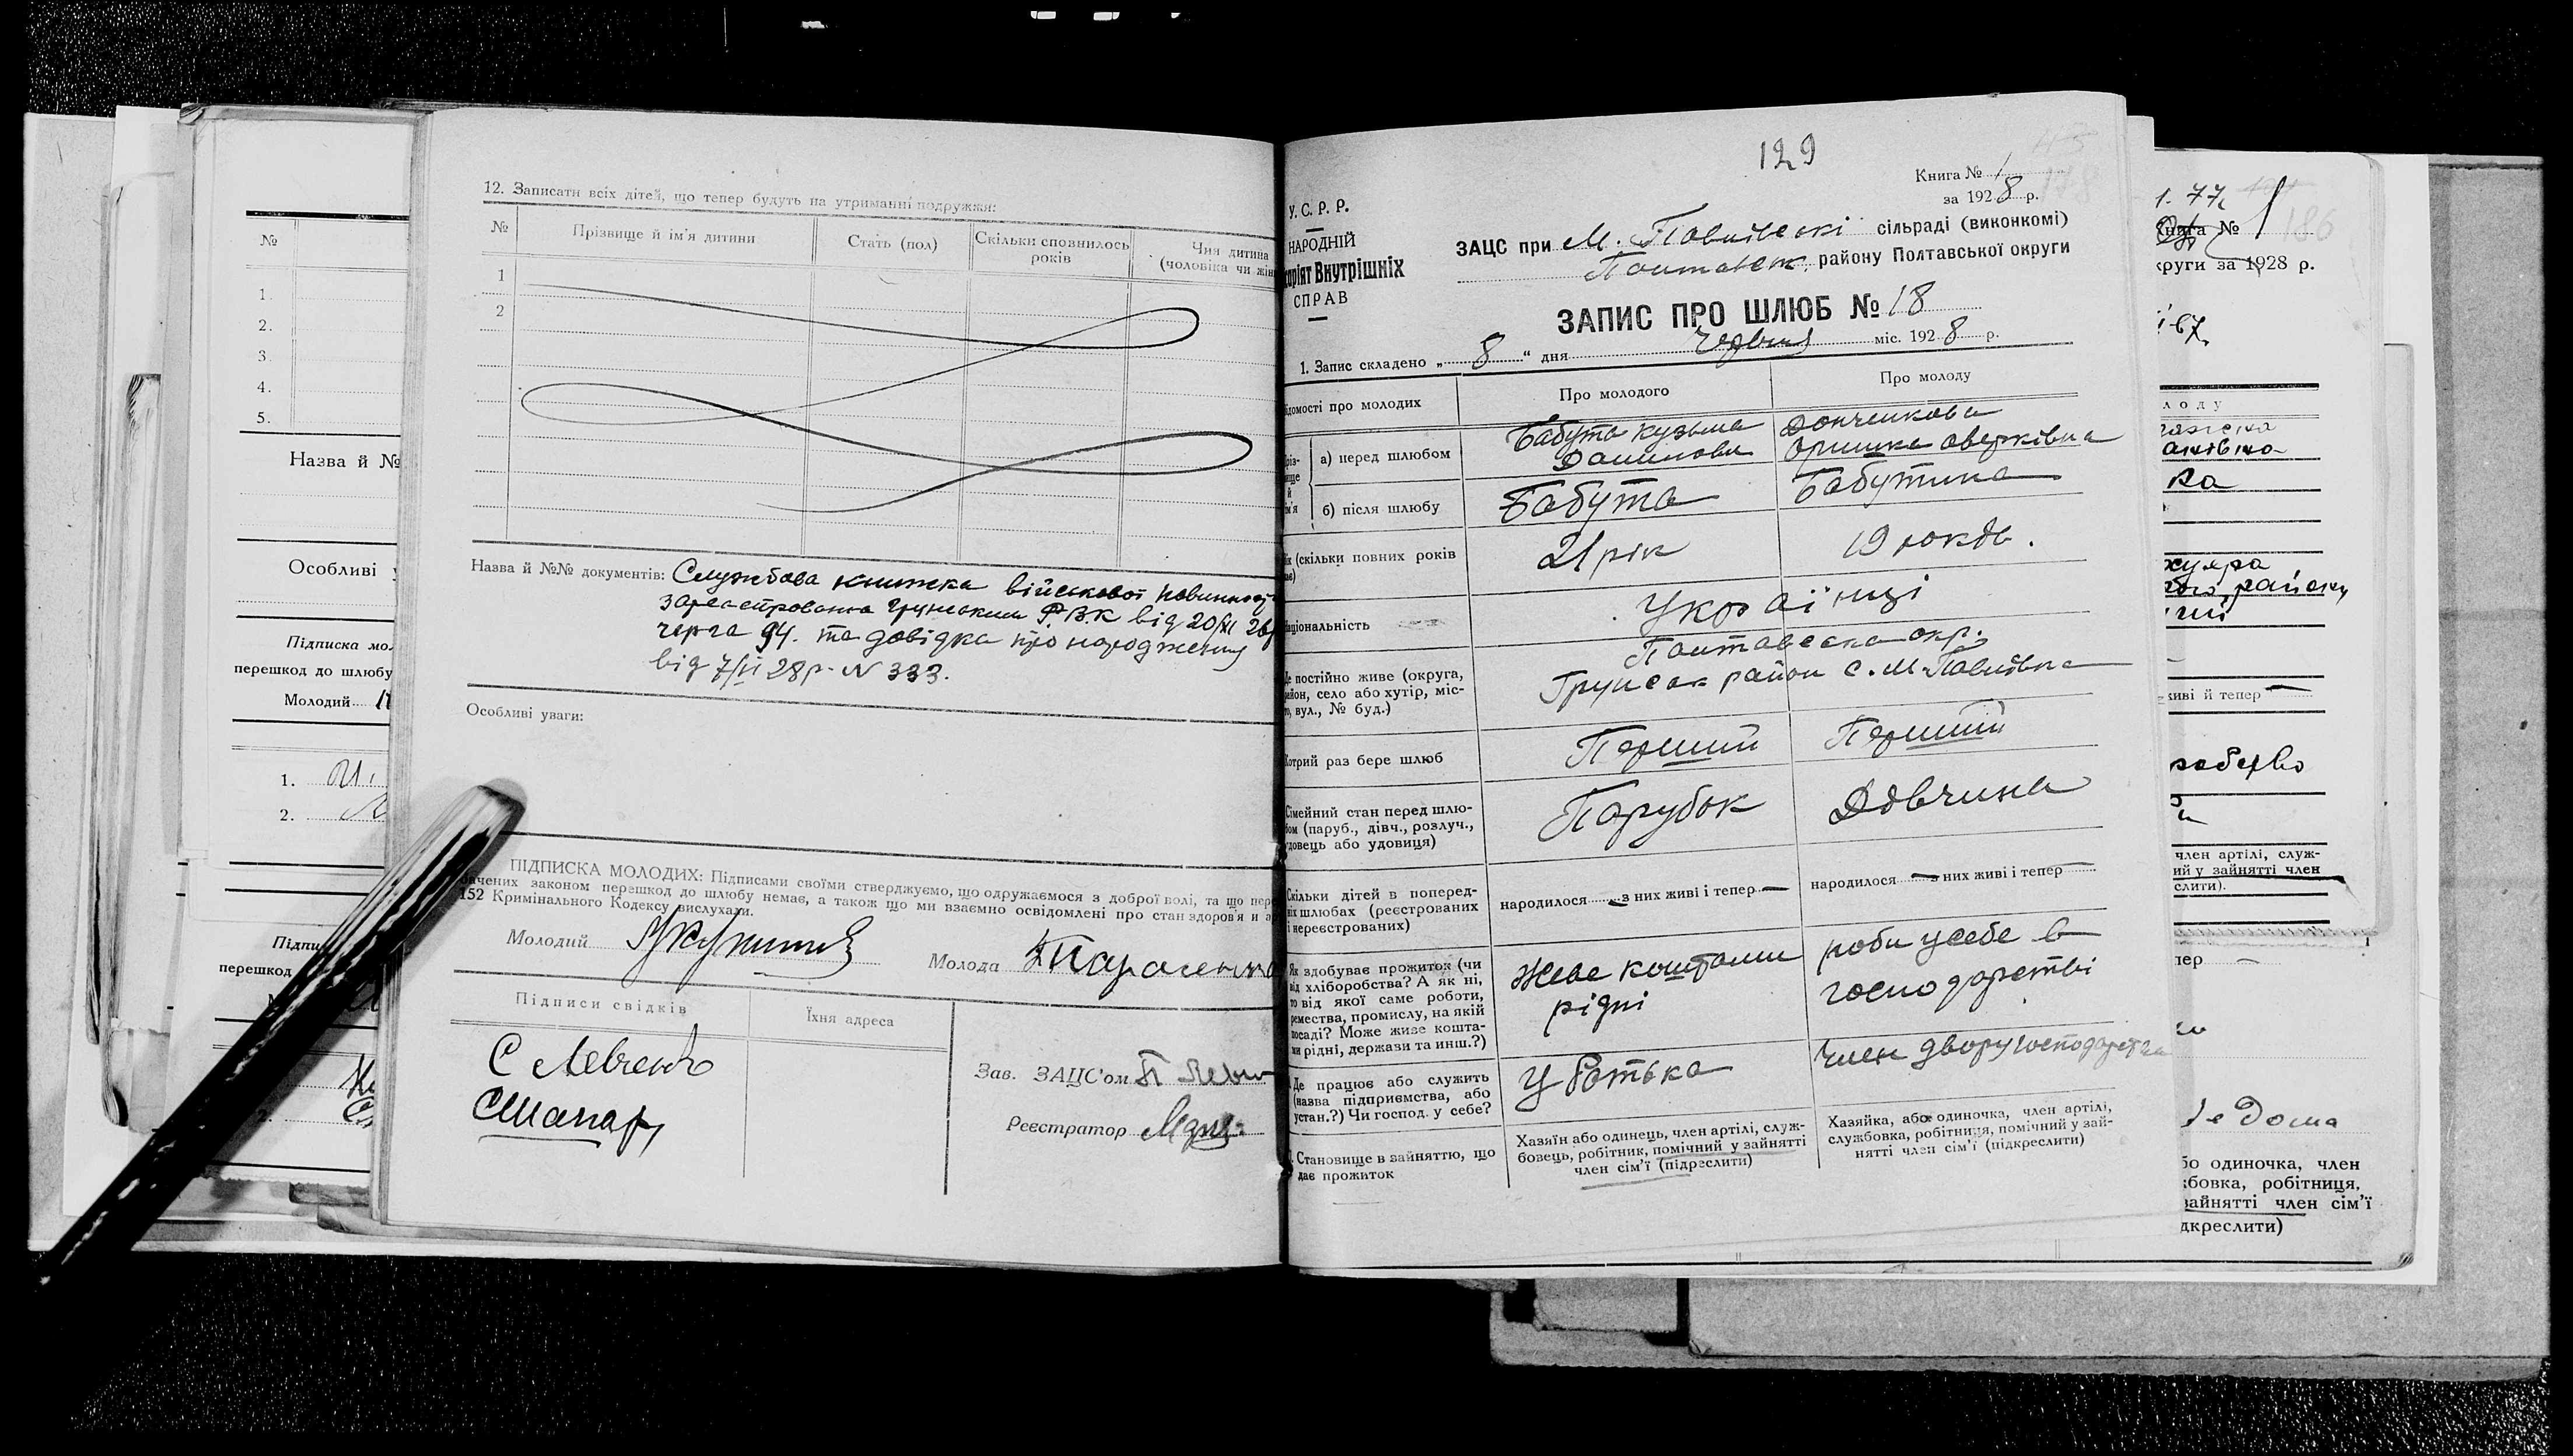 №
1.
2.
3
4.
5.
Назва й №
Особливі
Підписка мол
перешкод до шлюбу
Молодий
1.
2.
Підпи
перешкод
2.
12. Записати всіх дітей, що тепер будуть на утриманні подружжя:
№ Прізвище й ім'я дитини Стать (пол) Скільки сповнилось років Чия дитина (чоловіка чи жін
1
2
Назва й №№ документів: Службова книжка військової повинност
зареєстрована Грунським Р.В.К від 20/XI 26р
черга 94. та довідка про народження
від 7/VI 28 р. N 333.
Особливі уваги:
ПІДПИСКА МОЛОДИХ: Підписами своїми стверджуємо, що одружаємося з доброї волі, та що пере
бачених законом перешкод до шлюбу немає, а також що ми взаємно освідомлені про стан здоров'я и з
152 Кримінального Кодексу вислухали.
Молодий Молода
Підписи свідків Їхня адреса
С Левченко
Зав. ЗАЦС'ом
Реєстратор
129
Книга № 1
за 1928 р.
У. С. Р. Р.
НАРОДНІЙ
коріят Внутрішніх
СПРАВ
ЗАЦС при М. Павлівскі сільраді (виконкомі)
Полтавськ. району Полтавської округи
ЗАПИС ПРО ШЛЮБ № 18
1. Запис складено „ 8 “ дня червня міс. 1928 р.
ідомості про молодих Про молодого Про молоду
а) перед шлюбом Бабута Кузьма Данилови Донченкова Оришка Оверківна
б) після шлюбу Бабута Бабутина
ік (скільки повних років
21 рік 19 років.
аціональність Українці
е постійно живе (округа,
айон, село або хутір, міс-
о, вул., № буд.)
Полтавська окр.
Грунськ район с. М-Павлівка
отрий раз бере шлюб Перший Перший
Сімейний стан перед шлю-
бом (паруб., дівч., розлуч.,
удовець або удовиця)
Парубок Дівчина
Скільки дітей в поперед-
ніх шлюбах (реєстрованих
і нереєстрованих)
народилося — з них живі і тепер — народилося — з них живі і тепер
Як здобуває прожиток (чи
від хліборобства? А як ні,
то від якої саме роботи,
ремества, промислу, на якій
посаді? Може живе кошта-
ми рідні, держави та инш.?)
Живе коштами рідні роби усебе в господарстві
Де працює або служить
(назва підприємства, або
устан.?) Чи господ. у себе?
У батька Член двору господарства
Становище в зайняттю, що
дає прожиток
Хазяїн або одинець, член артілі, служ-
бовець, робітник, помічний у зайнятті
член сім'ї (підреслити)
Хазяйка, або одиночка, член артілі,
службовка, робітниця, помічний у зай-
нятті член сім'ї (підкреслити)
1. 77
Книга № 1
186
круги за 1928 р.
лоду
ка
живі й тепер —
член артілі, служ-
ий у зайнятті член
слити).
пер —
дома
бо одиночка, член
жбовка, робітниця,
зайнятті член сім'ї
дкреслити)